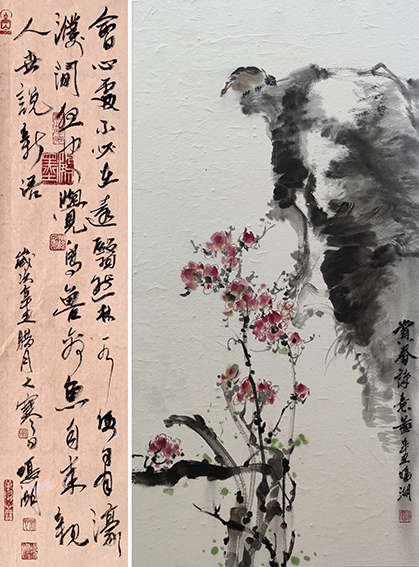 會心處不必在遠翳然林水便自有濠
濮間想也覺鳥獸禽魚自來親
人世說新語
歲次辛丑臘月之寒鳴湖
賞春辛丑鳴湖